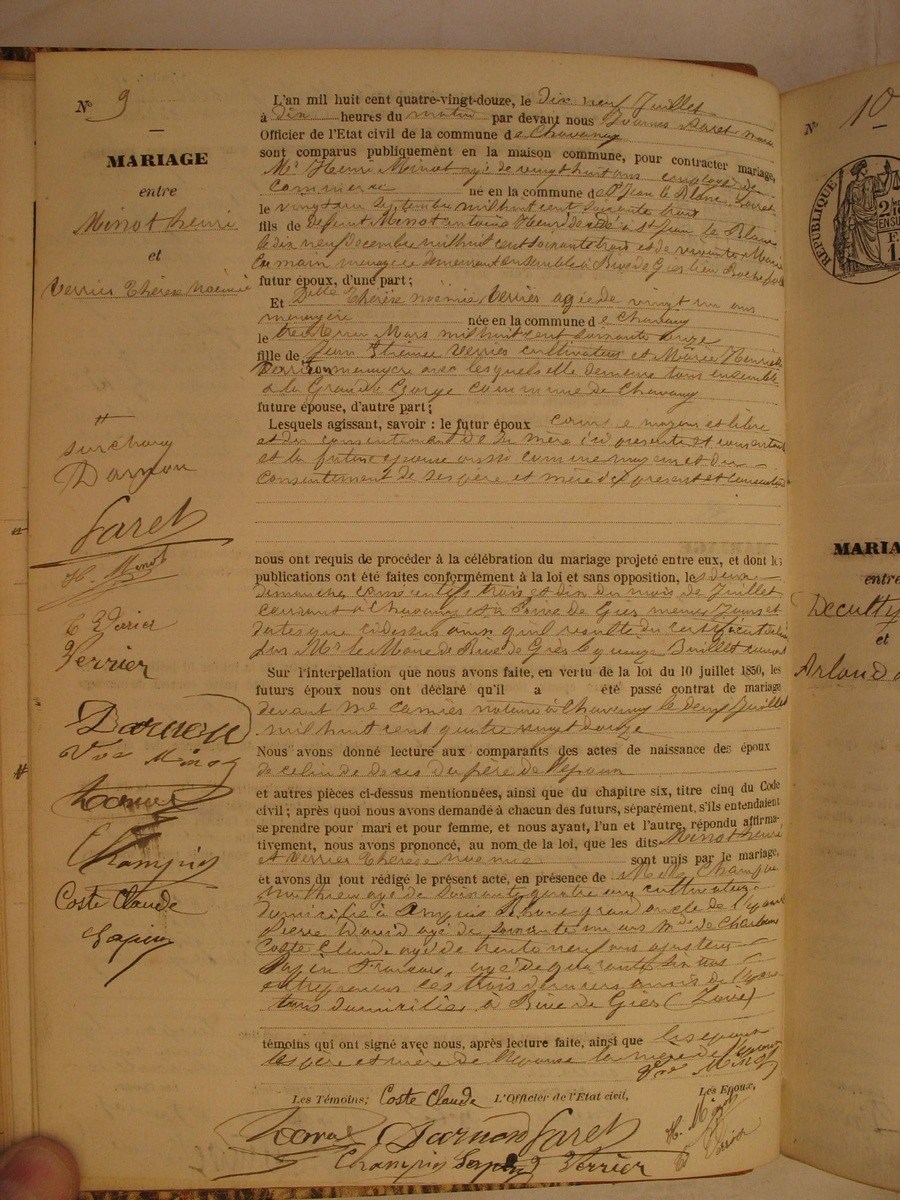 N° 9
MARIAGE
entre
Minot henri
et
Verrier Thérèse Noémie
L'an mil huit cent quatre-vingt-douze, le Dix neuf Juillet
à Dix heures du matin par devant nous Faret maire
Officier de l'Etat civil de la commune de Chavanay
sont comparus publiquement en la maison commune, pour contracter mariage,
Mr Henri Minot agé de vingt huit ans employé de
commerce né en la commune de St Jean le Blanc, Loiret
le vingt un Septembre mil huit cent soixante trois
fils de défunt Minot antoine Henri décédé à St Jean le Blanc
le dix neuf Decembre mil huit cent soixante trois et de vivante Marie
menagère demeurant ensemble à Rive de Gier lieu Rochefort
futur époux, d'une part;
Et Dlle Thérèse noemie Verrier agée de vingt un ans
menagère née en la commune de Chavanay
le trente un Mars mil huit cent soixante onze
fille de Jean Etienne Verrier cultivateur et Marie Henriette
Darnon menagère avec lesquels elle demeure tous ensemble
à la Grande Gorge commune de Chavanay
future épouse, d'autre part;
Lesquels agissant, savoir : le futur époux comme majeur et libre
et du consentement de sa mère ici presente et consentante
et la future epouse aussi comme majeure et du
consentement de ses père et mère ici present et consentant
nous ont requis de procéder à la célébration du mariage projeté entre eux, et dont les
publications ont été faites conformément à la loi et sans opposition, les deux
dimanches consecutifs trois et dix du mois de Juillet
courant à Chavanay et à Rive de Gier memes jours et
dates que ci dessus ainsi qu'il resulte du certificat délivré
par Mr le Maire de Rive de Gier le quinze Juillet courant
Sur l'interpellation que nous avons faite, en vertu de la loi du 10 juillet 1850, les
futurs époux nous ont déclaré qu'il a été passé contrat de mariage
devant Me notaire à Chavanay le deux Juillet
mil huit cent quatre vingt douze
Nous avons donné lecture aux comparants des actes de naissance des époux
de celui de deces du père de l'epoux
et autres pièces ci-dessus mentionnées, ainsi que du chapitre six, titre cinq du Code
civil; après quoi nous avons demandé à chacun des futurs, séparément, s'ils entendaient
se prendre pour mari et pour femme, et nous ayant, l'un et l'autre, répondu affirma-
tivement, nous avons prononcé, au nom de la loi, que les dits Minot henri
et Verrier Thérèse noemie sont unis par le mariage,
et avons du tout rédigé le présent acte, en présence de M. M. Champin
Mathieu agé de Soixante quatre ans cultivateur
domicilié à grand oncle de l'epouse
Pierre agé de soixante un ans md de Charbons
Coste Claude agé de trente neuf ans ajusteur
François, agé de quarante six ans
entrepreneur ces trois derniers amis de l'epoux
tous domiciliés à Rive de Gier (Loire)
témoins qui ont signé avec nous, après lecture faite, ainsi que les epoux
les père et mère de l'épouse la mère de l'epoux
Vve Minot
Les Témoins; Coste Claude L'Officier de l'Etat civil, Les Epoux,
H. Minot
Darnon Faret
Champin Verrier
surcharge
Darnon
Faret
H. Minot
Verrier
Verrier
Darnon
Vve Minot
Champin
Coste Claude
N° 10
REPUBLIQUE
MARIA
entre
et